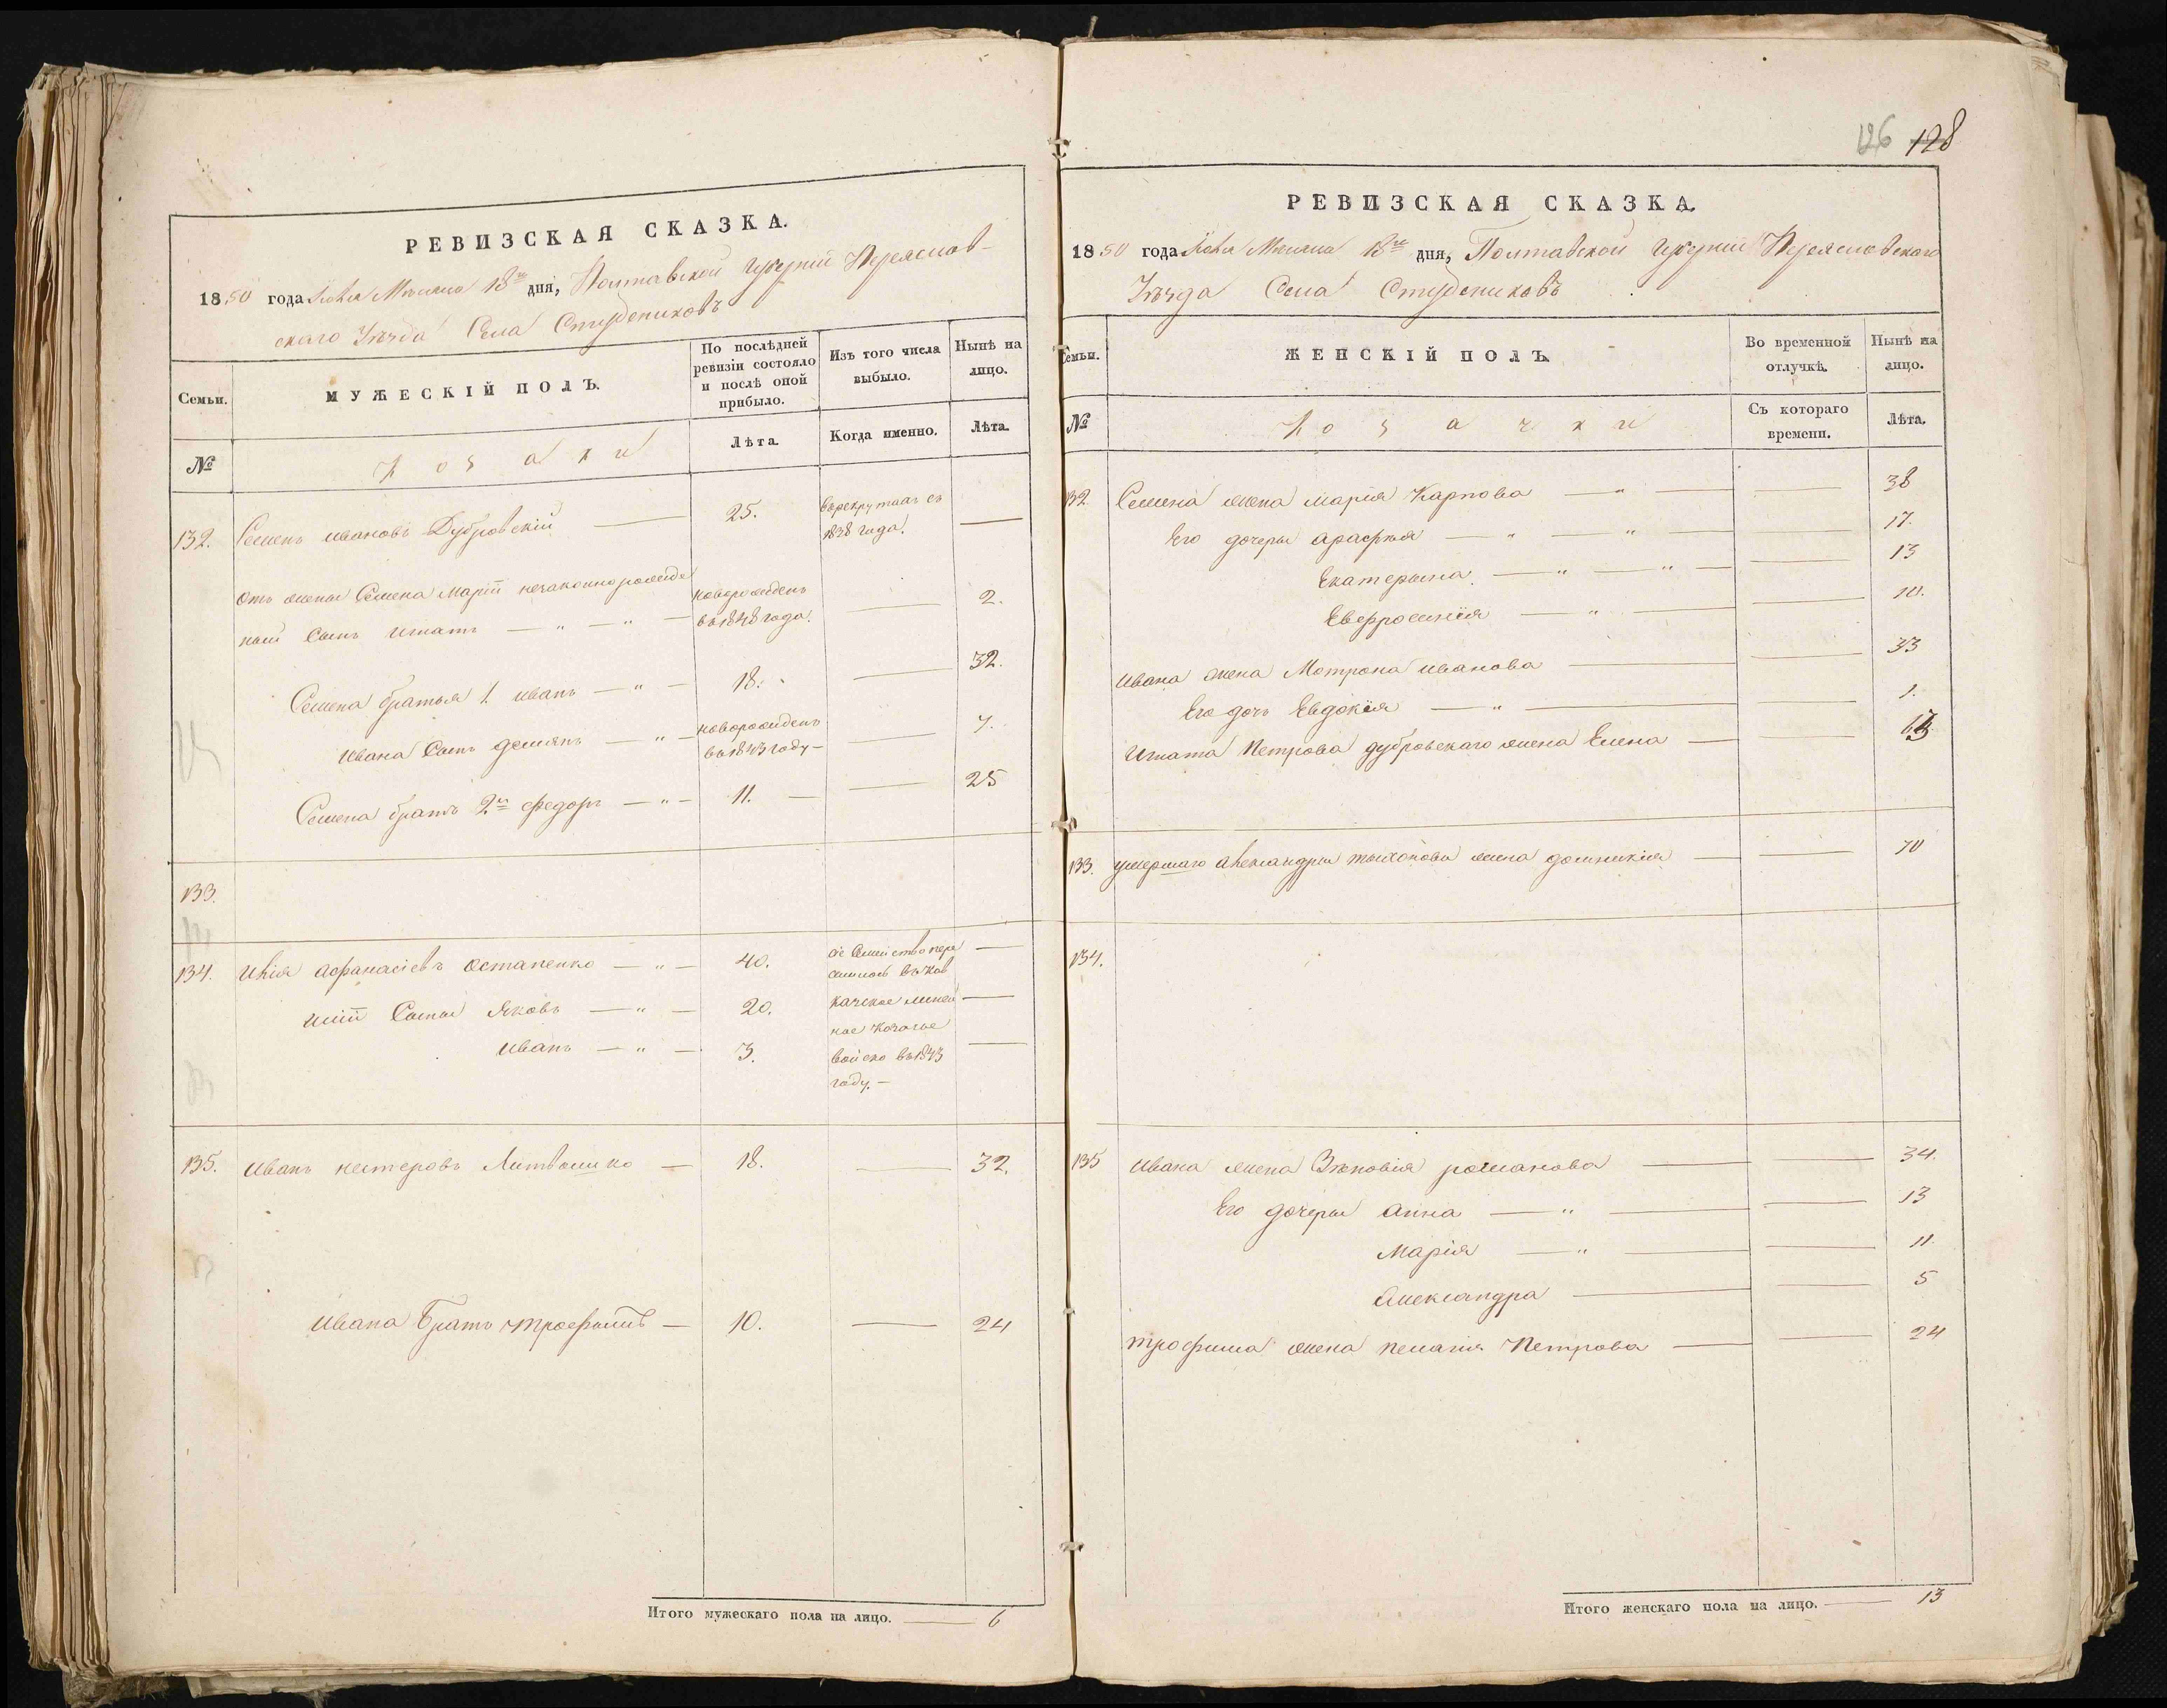 РЕВИЗСКАЯ СКАЗКА.
1850 года Мѣсяца 18го дня, Полтавской Губерніи Переяслов-
скаго Уѣзда Села Студениковъ
Семьи.
МУЖЕСКІЙ ПОЛЪ.
По послѣдней ревизіи состояло и послѣ оной прибыло.
Изъ того числа выбыло.
Нынѣ на лицо.
№
Козаки
Лѣта.
Когда именно.
Лѣта.
132. Семенъ Ивановъ Дубровскій — 25. Въ рекрутахъ съ —
1838 года.
Отъ жены Семена Маріи незаконнорожде новорожденъ
ный Сынъ Игнатъ — „ — „ — въ 1848 года. — 2.
Семена братья 1. Иванъ — „ — 18. — 32.
Ивана Сынъ Демянъ — „ — новорожденъ — 7.
въ 1843 году —
Семена братъ 2й Федоръ — „ — 11. — — 25
133.
134. Афанасіевъ Остапенко — „ — 40. сіе Семейство пере —
селилось въ Кав
Сыны Яковъ — „ — 20. казское линей —
ное Козачье
Иванъ — „ — 3. войско въ 1843 —
году. —
135. Иванъ Нестеровъ — 18. — 32.
Ивана Братъ Трофимъ — 10. — 24
Итого мужескаго пола на лицо. — 6
126 128
РЕВИЗСКАЯ СКАЗКА.
1850 года Мѣсяца 18го дня, Полтавской Губерніи Переясловскаго
Уѣзда Села Студениковъ
Семьи.
ЖЕНСКІЙ ПОЛЪ.
Во временной отлучкѣ.
Нынѣ на лицо.
№
Козачки
Съ котораго времени.
Лѣта.
132. Семена жена Марія Карпова — „ — — 38
Его дочеры — „ — „ — 17.
Екатерина. — „ — „ — — 13
Евфросинія — „ — — 10.
Ивана жена Мотрона Иванова — — 33
Его дочь Евдокія — „ — — 1.
Игната Петрова Дубровскаго жена Елена — —
133. умершаго Александры Тыхонова жена Домникія — — 70
134.
135 Ивана жена Зѣновія Романова — — 34.
Его дочеры Анна — „ — — 13
Марія — „ — — 11.
Александра — — 5
Трофима жена Пелагія Петрова — — 24
Итого женскаго пола на лицо. — 13